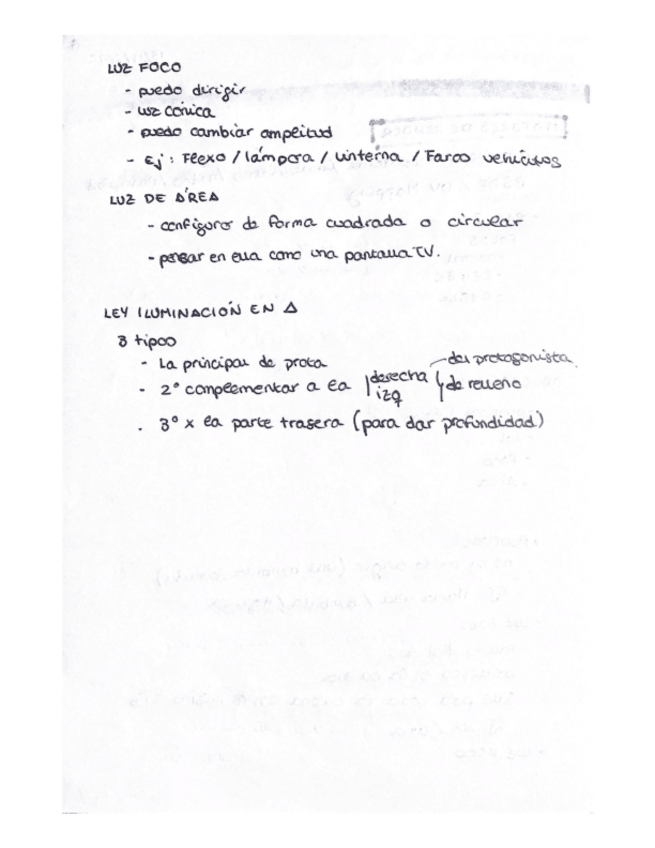 LUZ FOCO
- puedo dirigir
- luz cónica
- puedo cambiar amplitud
- Ej: Flexo / lámpara / linterna / Faros vehículos
LUZ DE ÁREA
- configuro de forma cuadrada o circular
- pensar en ella como una pantalla TV.
LEY ILUMINACIÓN EN Δ
3 tipos
- La principal de prota
del protagonista
- 2º complementar a la derecha de relleno
izq
. 3º x la parte trasera (para dar profundidad)